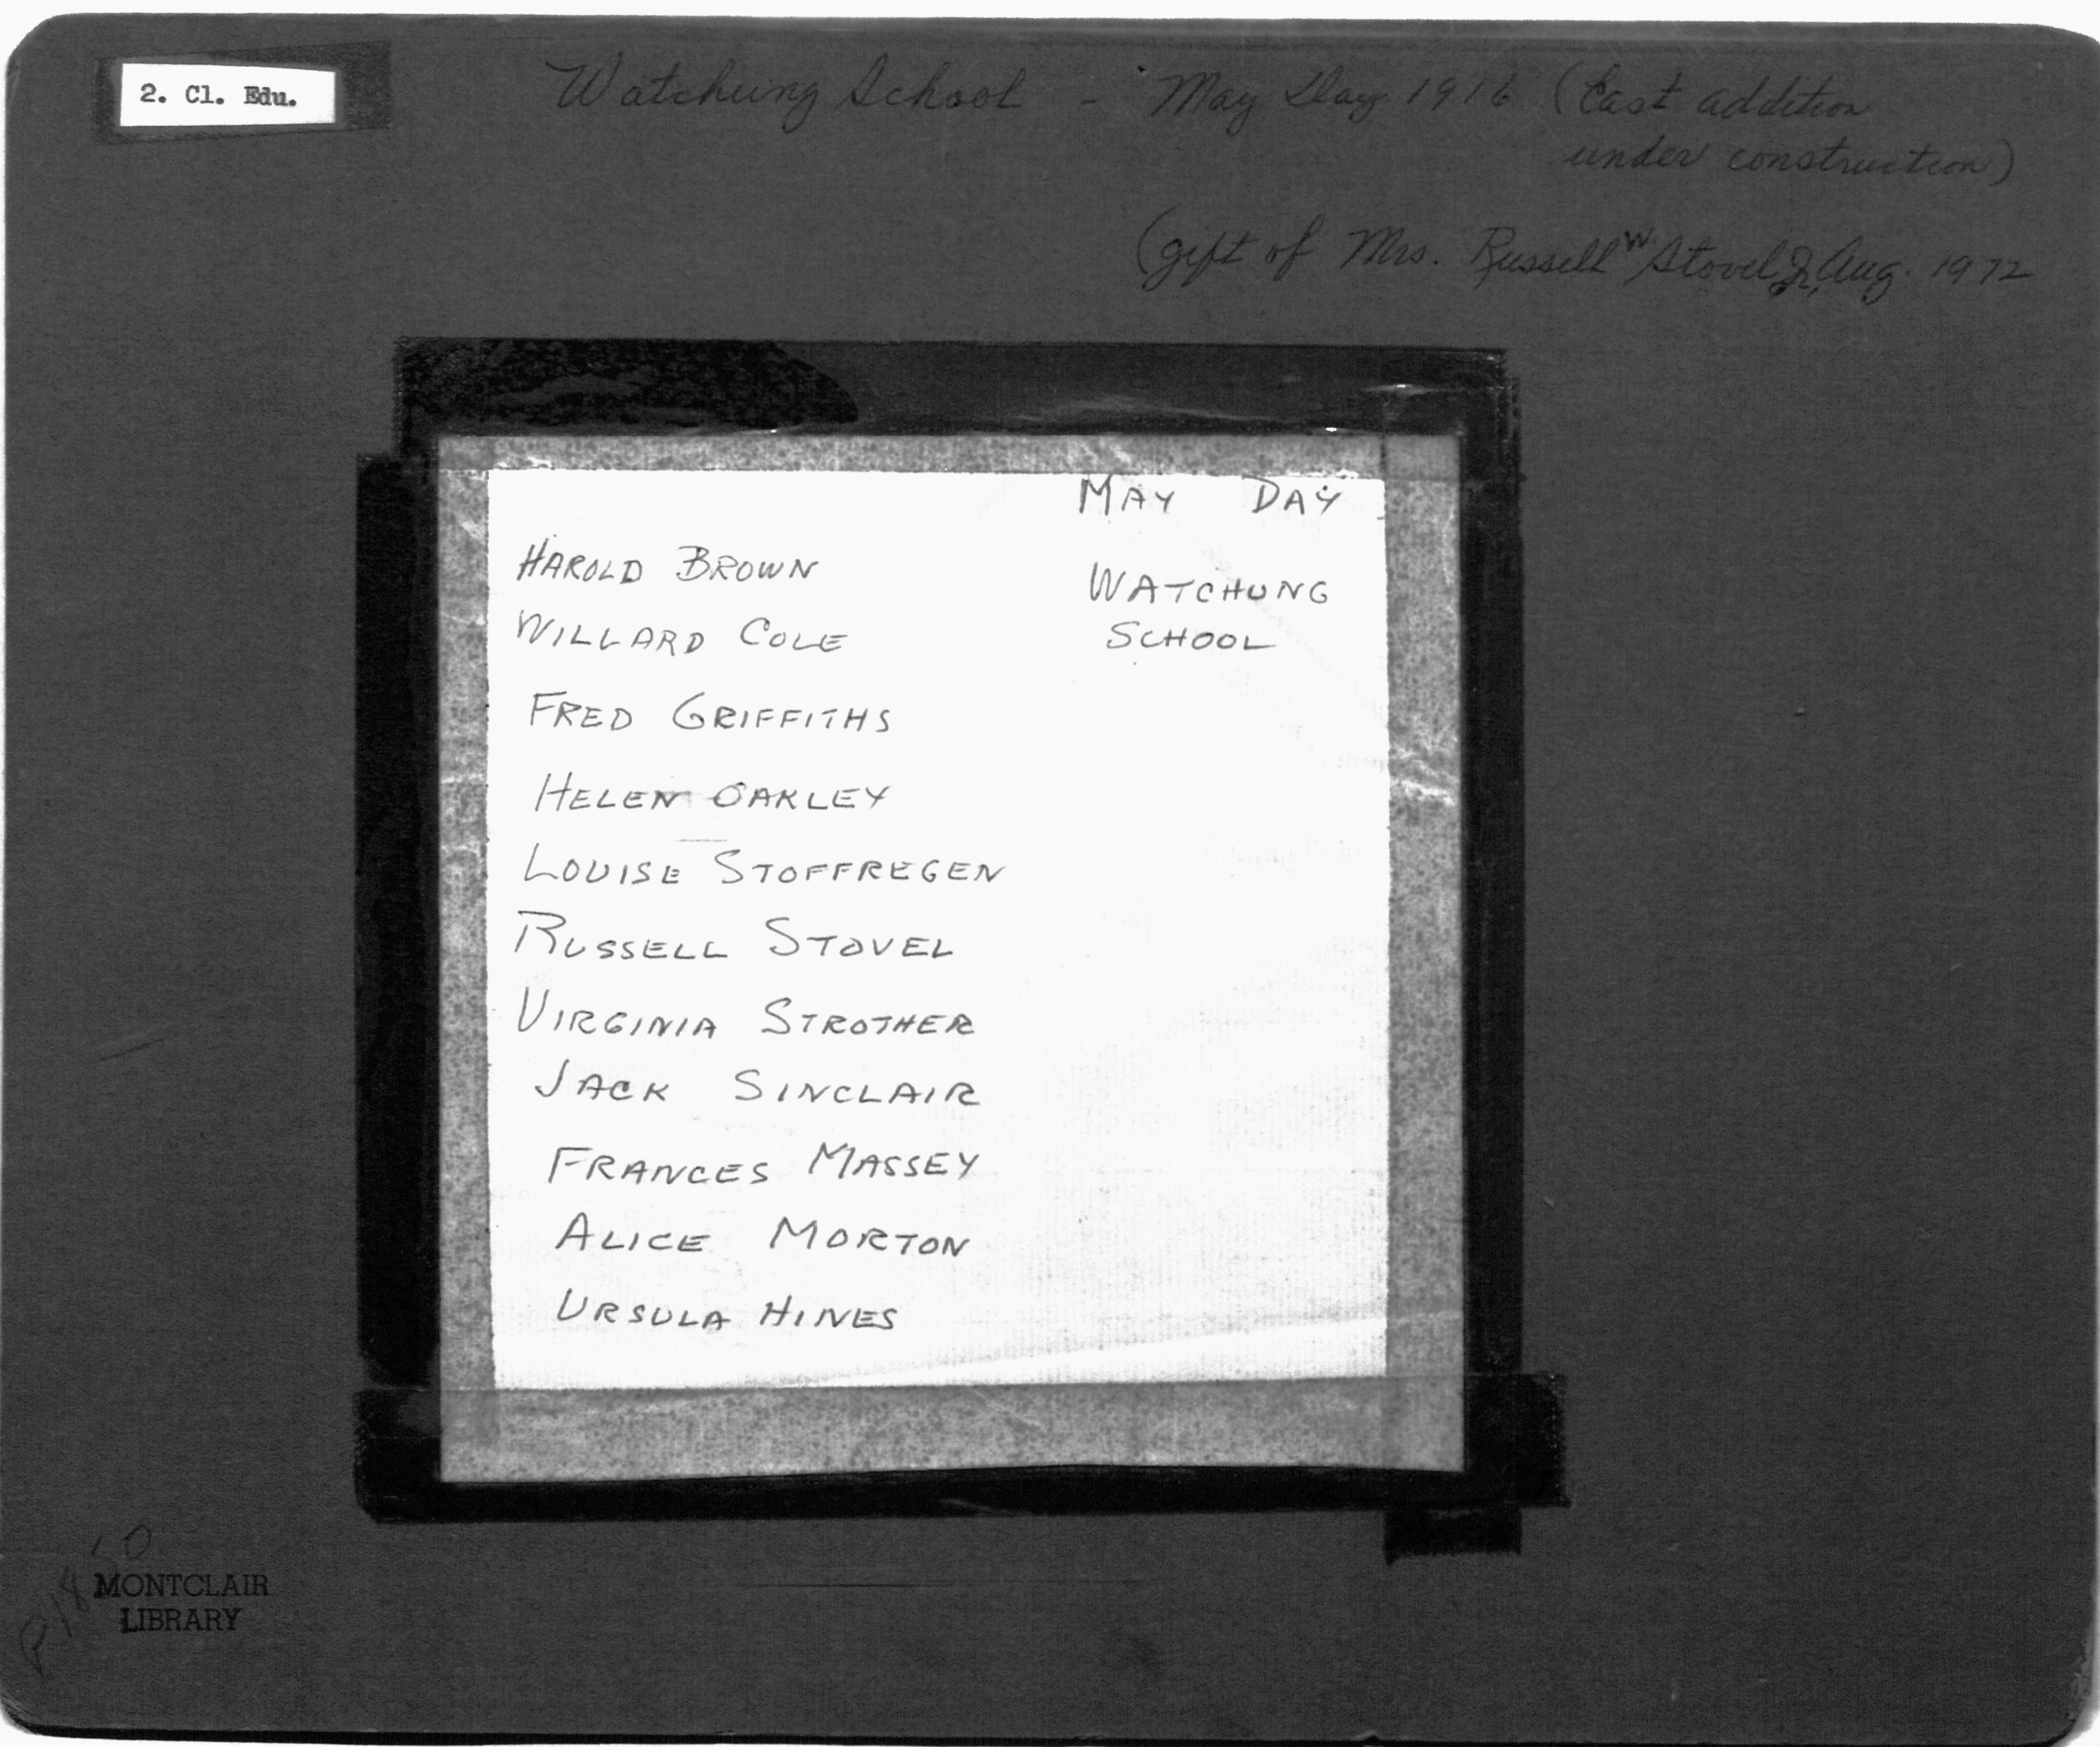 2. Cl. Edu.
Watchung School - May Day 1916 (East addition
under construction)
(gift of Mrs. Russell W. Stovel Jr, Aug. 1972
MAY DAY
HAROLD BROWN
WATCHUNG
WILLARD COLE
SCHOOL
FRED GRIFFITHS
HELEN OAKLEY
LOUISE STOFFREGEN
RUSSELL STOVEL
VIRGINIA STROTHER
JACK SINCLAIR
FRANCES MASSEY
ALICE MORTON
URSULA HINES
MONTCLAIR
LIBRARY